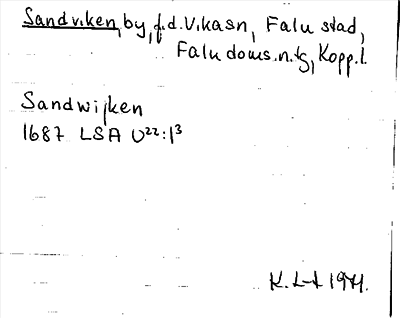 Sandviken, by, f.d. Vikasn, Falu stad,
Falu doms.n.tg, Kopp.l.
Sandwijken
1687 LSA U22:13
K. L-t 1971.